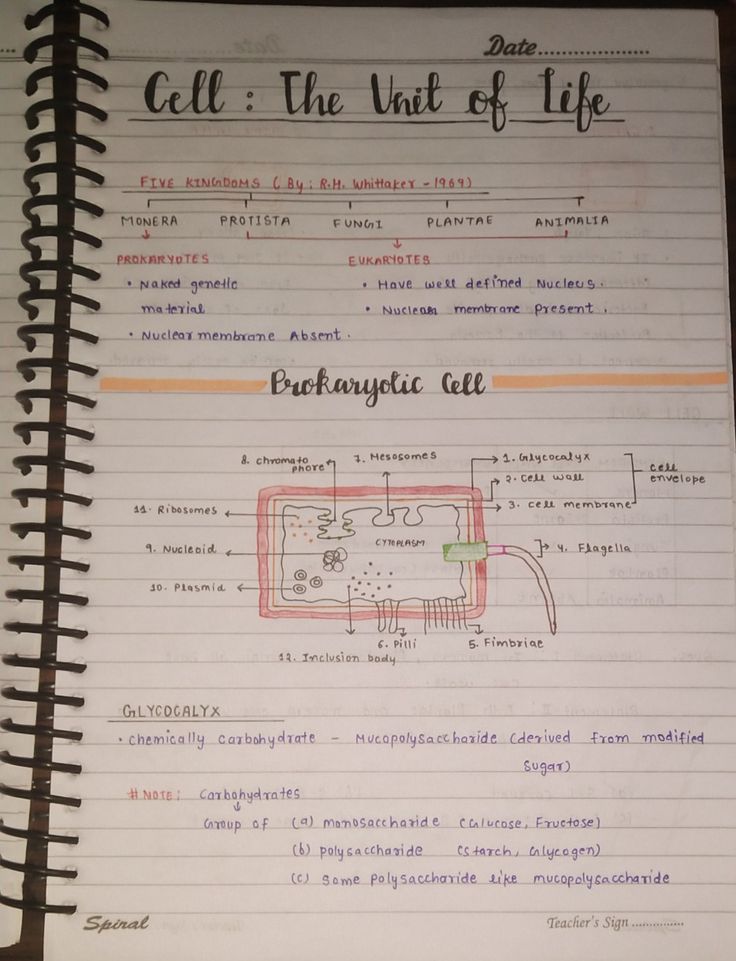 Date..................
Cell : The Unit of Life
FIVE KINGDOMS ( By : R.H. Whittaker - 1969)
MONERA PROTISTA FUNGI PLANTAE ANIMALIA
PROKARYOTES EUKARYOTES
• Naked genetic • Have well defined Nucleus.
material • Nuclear membrane present.
• Nuclear membrane Absent.
Prokaryotic Cell
8. chromato 7. Mesosomes 1. Glycocalyx
phore
2. cell wall cell
envelope
11. Ribosomes 3. cell membrane
CYTOPLASM
9. Nucleoid 4. Flagella
10. Plasmid
6. Pilli 5. Fimbriae
12. Inclusion body
GLYCOCALYX
• chemically carbohydrate - Mucopolysaccharide (derived from modified
sugar)
# NOTE: Carbohydrates
Group of (a) monosaccharide (Glucose, Fructose)
(b) polysaccharide (starch, Glycogen)
(c) some polysaccharide like mucopolysaccharide
Spiral Teacher's Sign ...............